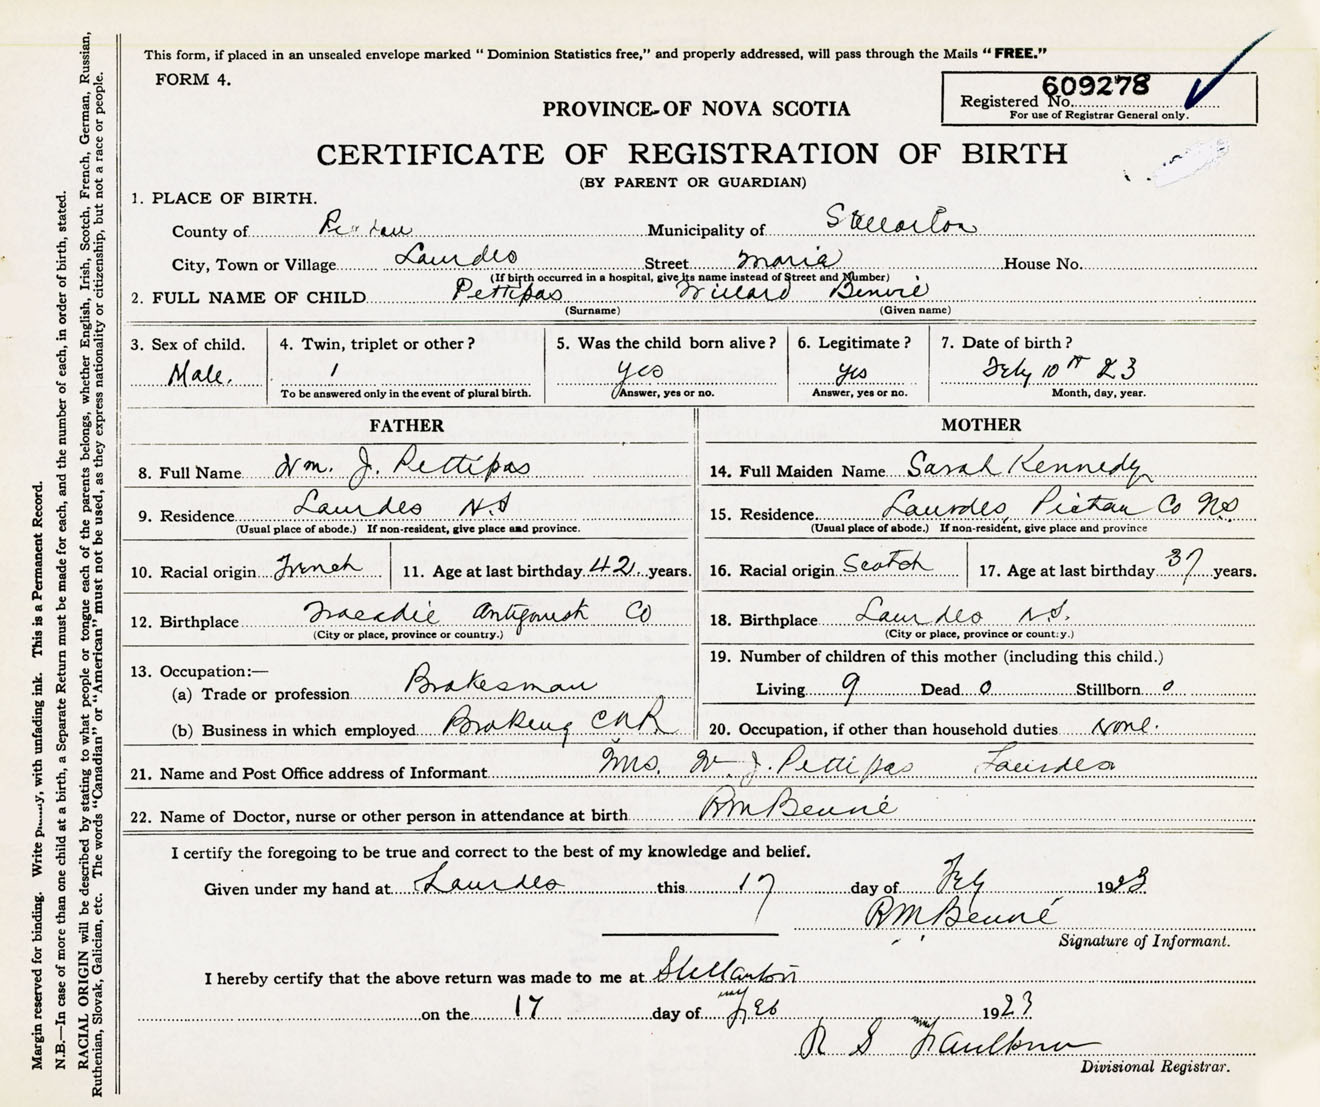 This form, if placed in an unsealed envelope marked “ Dominion Statistics free,” and properly addressed, will pass through the Mails “ FREE.”
FORM 4.
609278
Registered No.
For use of Registrar General only.
PROVINCE OF NOVA SCOTIA
CERTIFICATE OF REGISTRATION OF BIRTH
(BY PARENT OR GUARDIAN)
1. PLACE OF BIRTH.
County of Pictou Municipality of Stellarton
City, Town or Village Lourdes Street Maria House No.
(If birth occurred in a hospital, give its name instead of Street and Number)
2. FULL NAME OF CHILD Pettipas Willard Benvie
(Surname) (Given name)
3. Sex of child. 4. Twin, triplet or other ? 5. Was the child born alive ? 6. Legitimate ? 7. Date of birth ?
Male. 1 yes yes Feby 10th 23
To be answered only in the event of plural birth. Answer, yes or no. Answer, yes or no. Month, day, year.
FATHER MOTHER
8. Full Name Wm. J. Pettipas 14. Full Maiden Name Sarah Kennedy
9. Residence Lourdes N.S 15. Residence Lourdes, Pictou Co NS
(Usual place of abode.) If non-resident, give place and province. (Usual place of abode.) If non-resident, give place and province
10. Racial origin French 11. Age at last birthday 42 years. 16. Racial origin Scotch 17. Age at last birthday 37 years.
12. Birthplace Tracadie Antigonish Co 18. Birthplace Lourdes N.S.
(City or place, province or country.) (City or place, province or country.)
13. Occupation:— 19. Number of children of this mother (including this child.)
(a) Trade or profession Brakesman Living 9 Dead 0 Stillborn 0
(b) Business in which employed Braking CNR 20. Occupation, if other than household duties None.
21. Name and Post Office address of Informant Mrs. W. J. Pettipas Lourdes
22. Name of Doctor, nurse or other person in attendance at birth RM Benvie
I certify the foregoing to be true and correct to the best of my knowledge and belief.
Given under my hand at Lourdes this 17 day of Feby 1923
RM Benvie
Signature of Informant.
I hereby certify that the above return was made to me at Stellarton
on the 17 day of Feb 1923
R S Faulkner
Divisional Registrar.
Margin reserved for binding. Write with unfading ink. This is a Permanent Record.
N.B.—In case of more than one child at a birth, a Separate Return must be made for each, and the number of each, in order of birth, stated.
RACIAL ORIGIN will be described by stating to what people or tongue each of the parents belongs, whether English, Irish, Scotch, French, German, Russian,
Ruthenian, Slovak, Galician, etc. The words “Canadian” or “American” must not be used, as they express nationality or citizenship, but not a race or people.